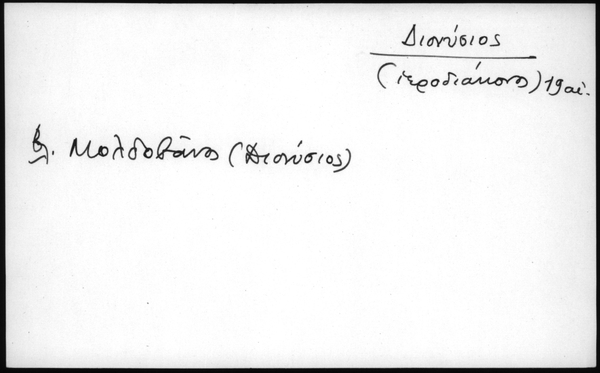 Διονύσιος
(ἱεροδιάκονος) 19 αἰ.
βλ. Μολδοβᾶνος (Διονύσιος)